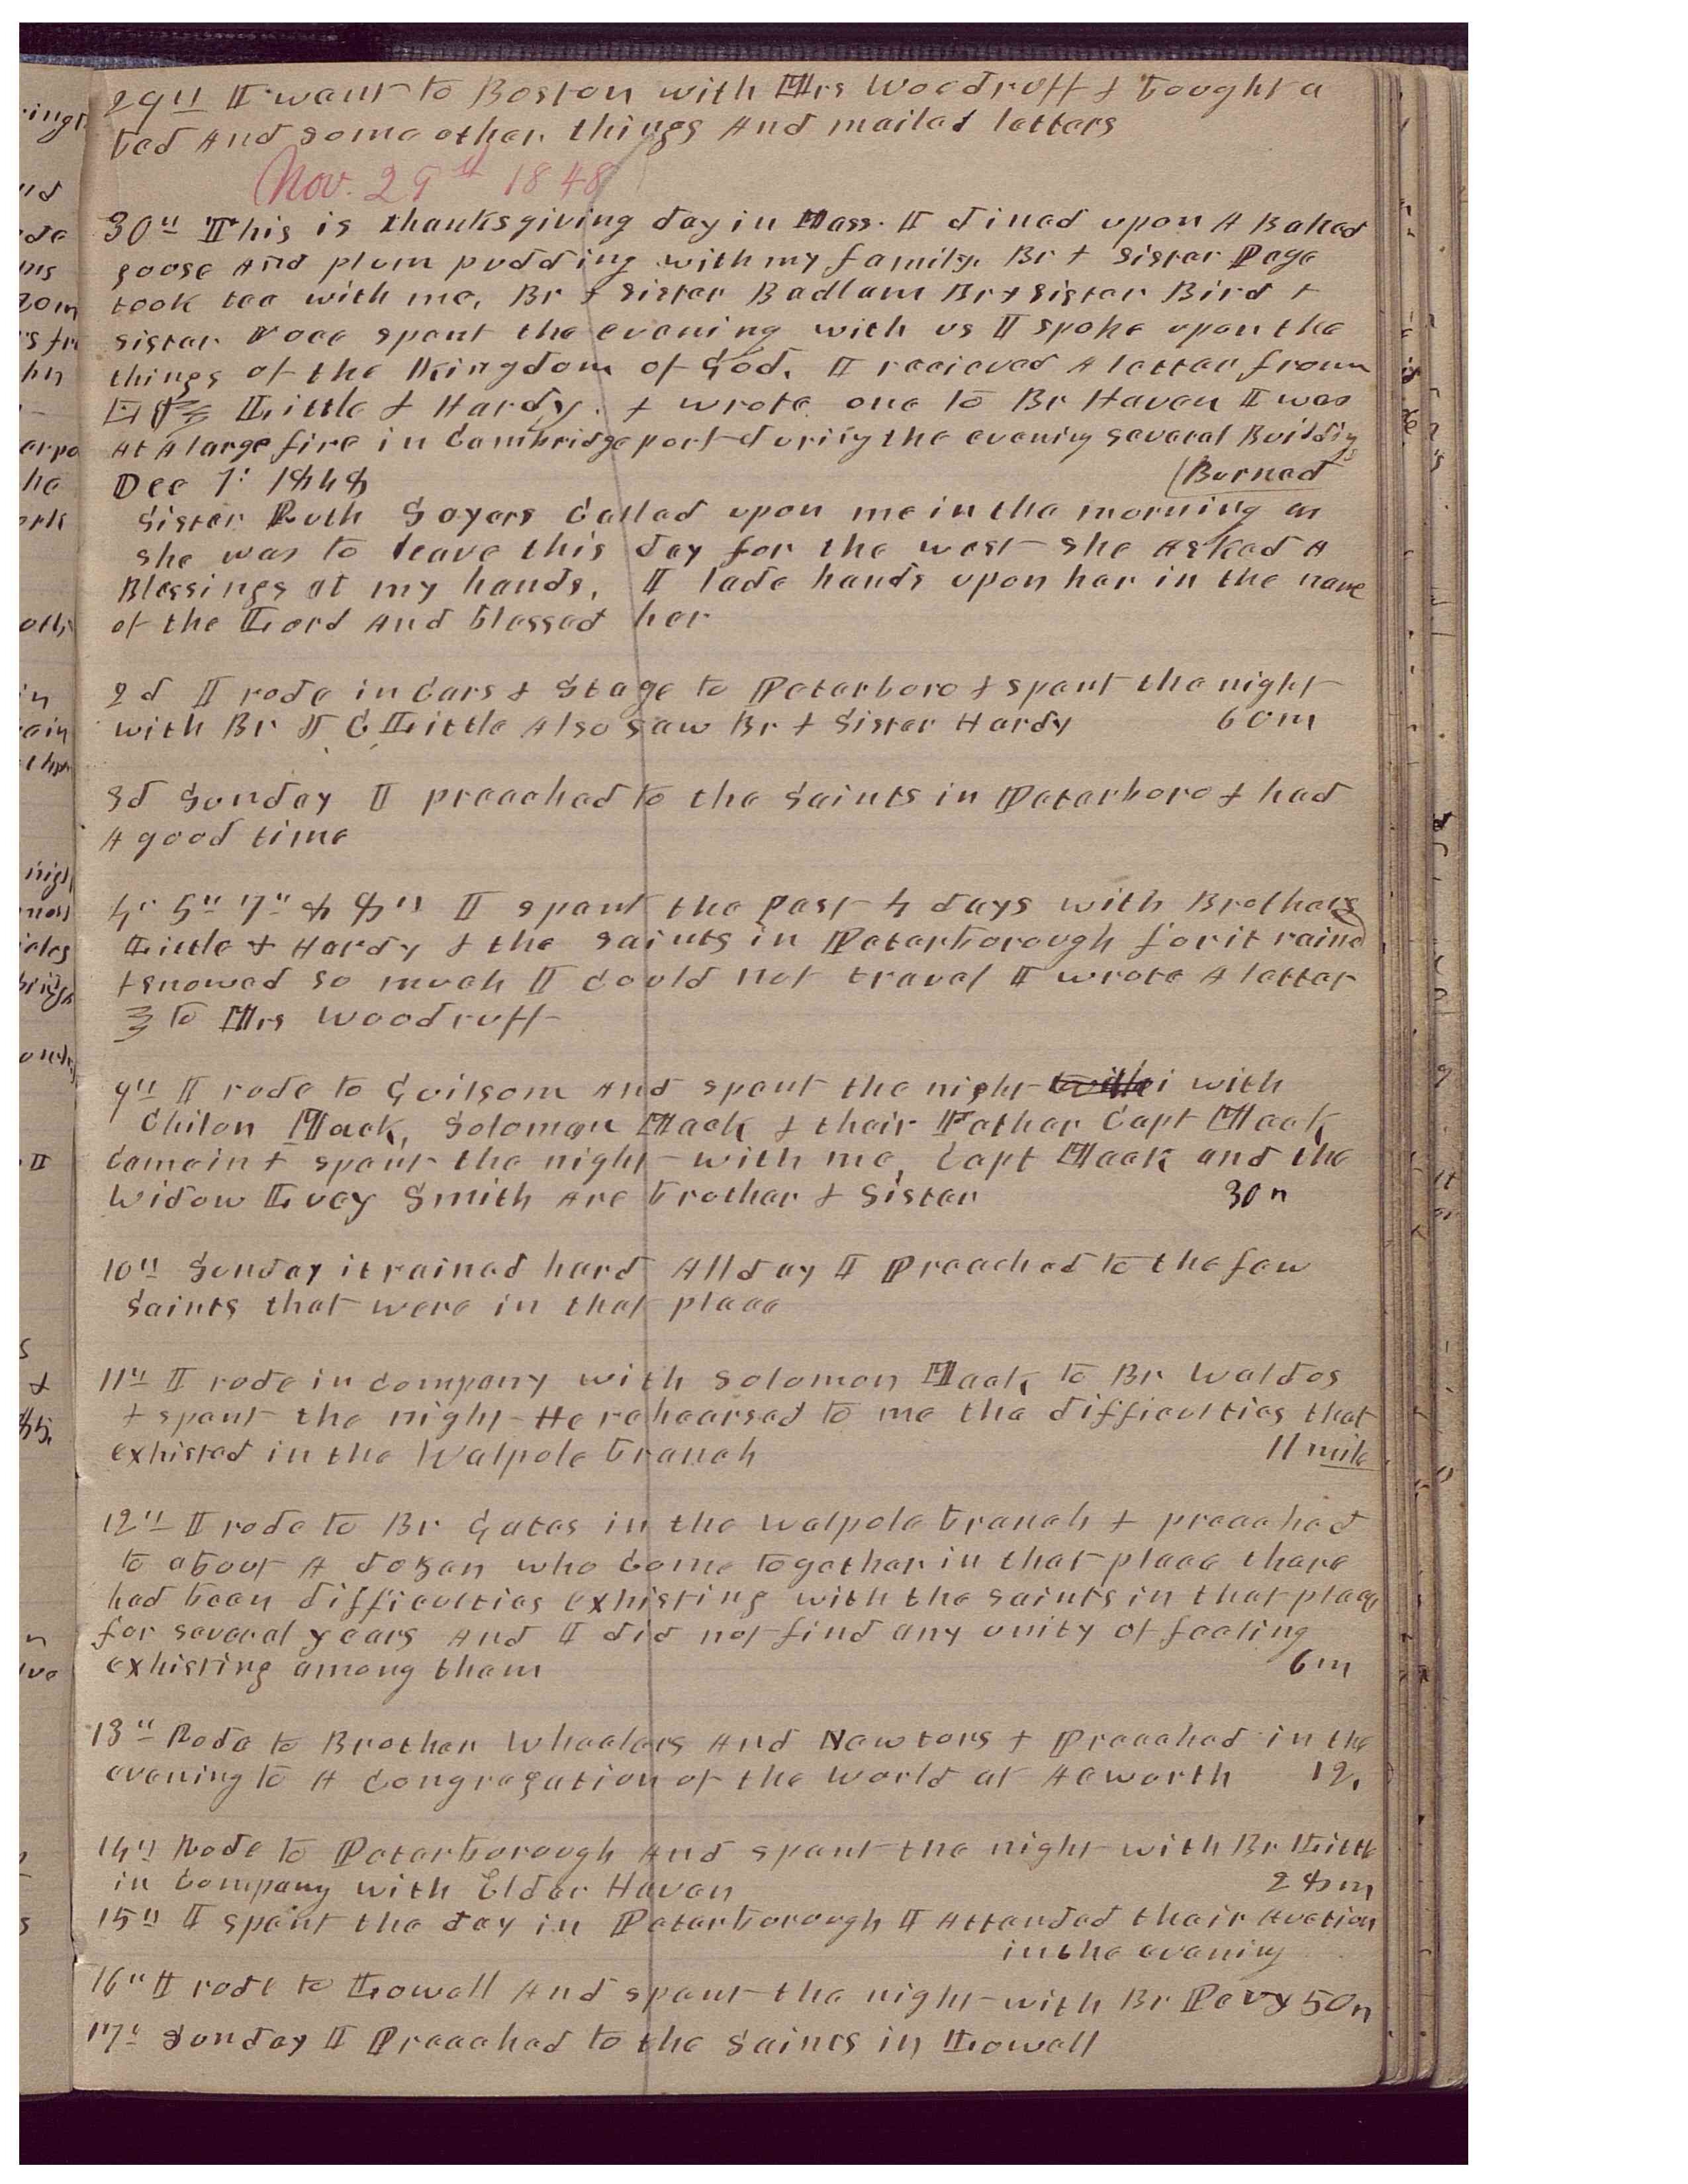 29th I went to Boston with Mrs Woodruff & bought a
bed And some other things And mailed letters
Nov. 29th 1848
30th This is thanksgiving day in Mass. I dined upon A Baked
goose And plum pudding with my family. Br & Sister Page
took tea with me, Br & Sister Badlam Br & Sister Bird &
Sister Voce spent the evening with us I spoke upon the
things of the Kingdom of God. I recieved A letter from
Little & Hardy. & wrote one to Br Haven I was
At A large fire in Cambridgeport during the evening several Buildings
Burned
Dec 1st 1848
Sister Ruth Sayers Called upon me in the morning as
she was to leave this day for the west she Asked A
Blessings at my hands, I lade hands upon her in the name
of the Lord And blessed her
2d I rode in Cars & Stage to Peterboro & spent the night
with Br J C Little Also saw Br & Sister Hardy 60 m
3d Sunday I preached to the Saints in Peterboro & had
A good time
4th 5th 7th & 8th I spent the past 4 days with Brothers
Little & Hardy & the Saints in Peterborough for it rained
& snowed so much I Could not travel I wrote A letter
to Mrs Woodruff
9th I rode to Guilsom And spent the night with
Chilon Mack, Solomon Mack & their Father Capt Mack
Came in & spent the night with me, Capt Mack and the
Widow Lucy Smith Are brother & Sister 30 m
10th Sunday it rained hard All day I Preached to the few
Saints that were in that place
11th I rode in Company with Solomon Mack to Br Waldos
& spent the night He rehearsed to me the difficulties that
exhisted in the Walpole branch 11 mile
12th I rode to Br Gates in the Walpole branch & preached
to about A dozen who Come together in that place there
had been difficulties exhisting with the Saints in that place
for several years And I did not find any unity of feeling
exhisting among them 6 m
13th Rode to Brother Wheelers And Newtons & Preached in the
evening to A Congregation of the world at Acworth 12,
14th Rode to Peterborough And spent the night with Br Little
in Company with Elder Haven 28 m
15th I spent the day in Peterborough I Attended their Auction
in the evening
16th I rode to Lowell And spent the night with Br Pevy 50 m
17th Sunday I Preached to the Saints in Lowell